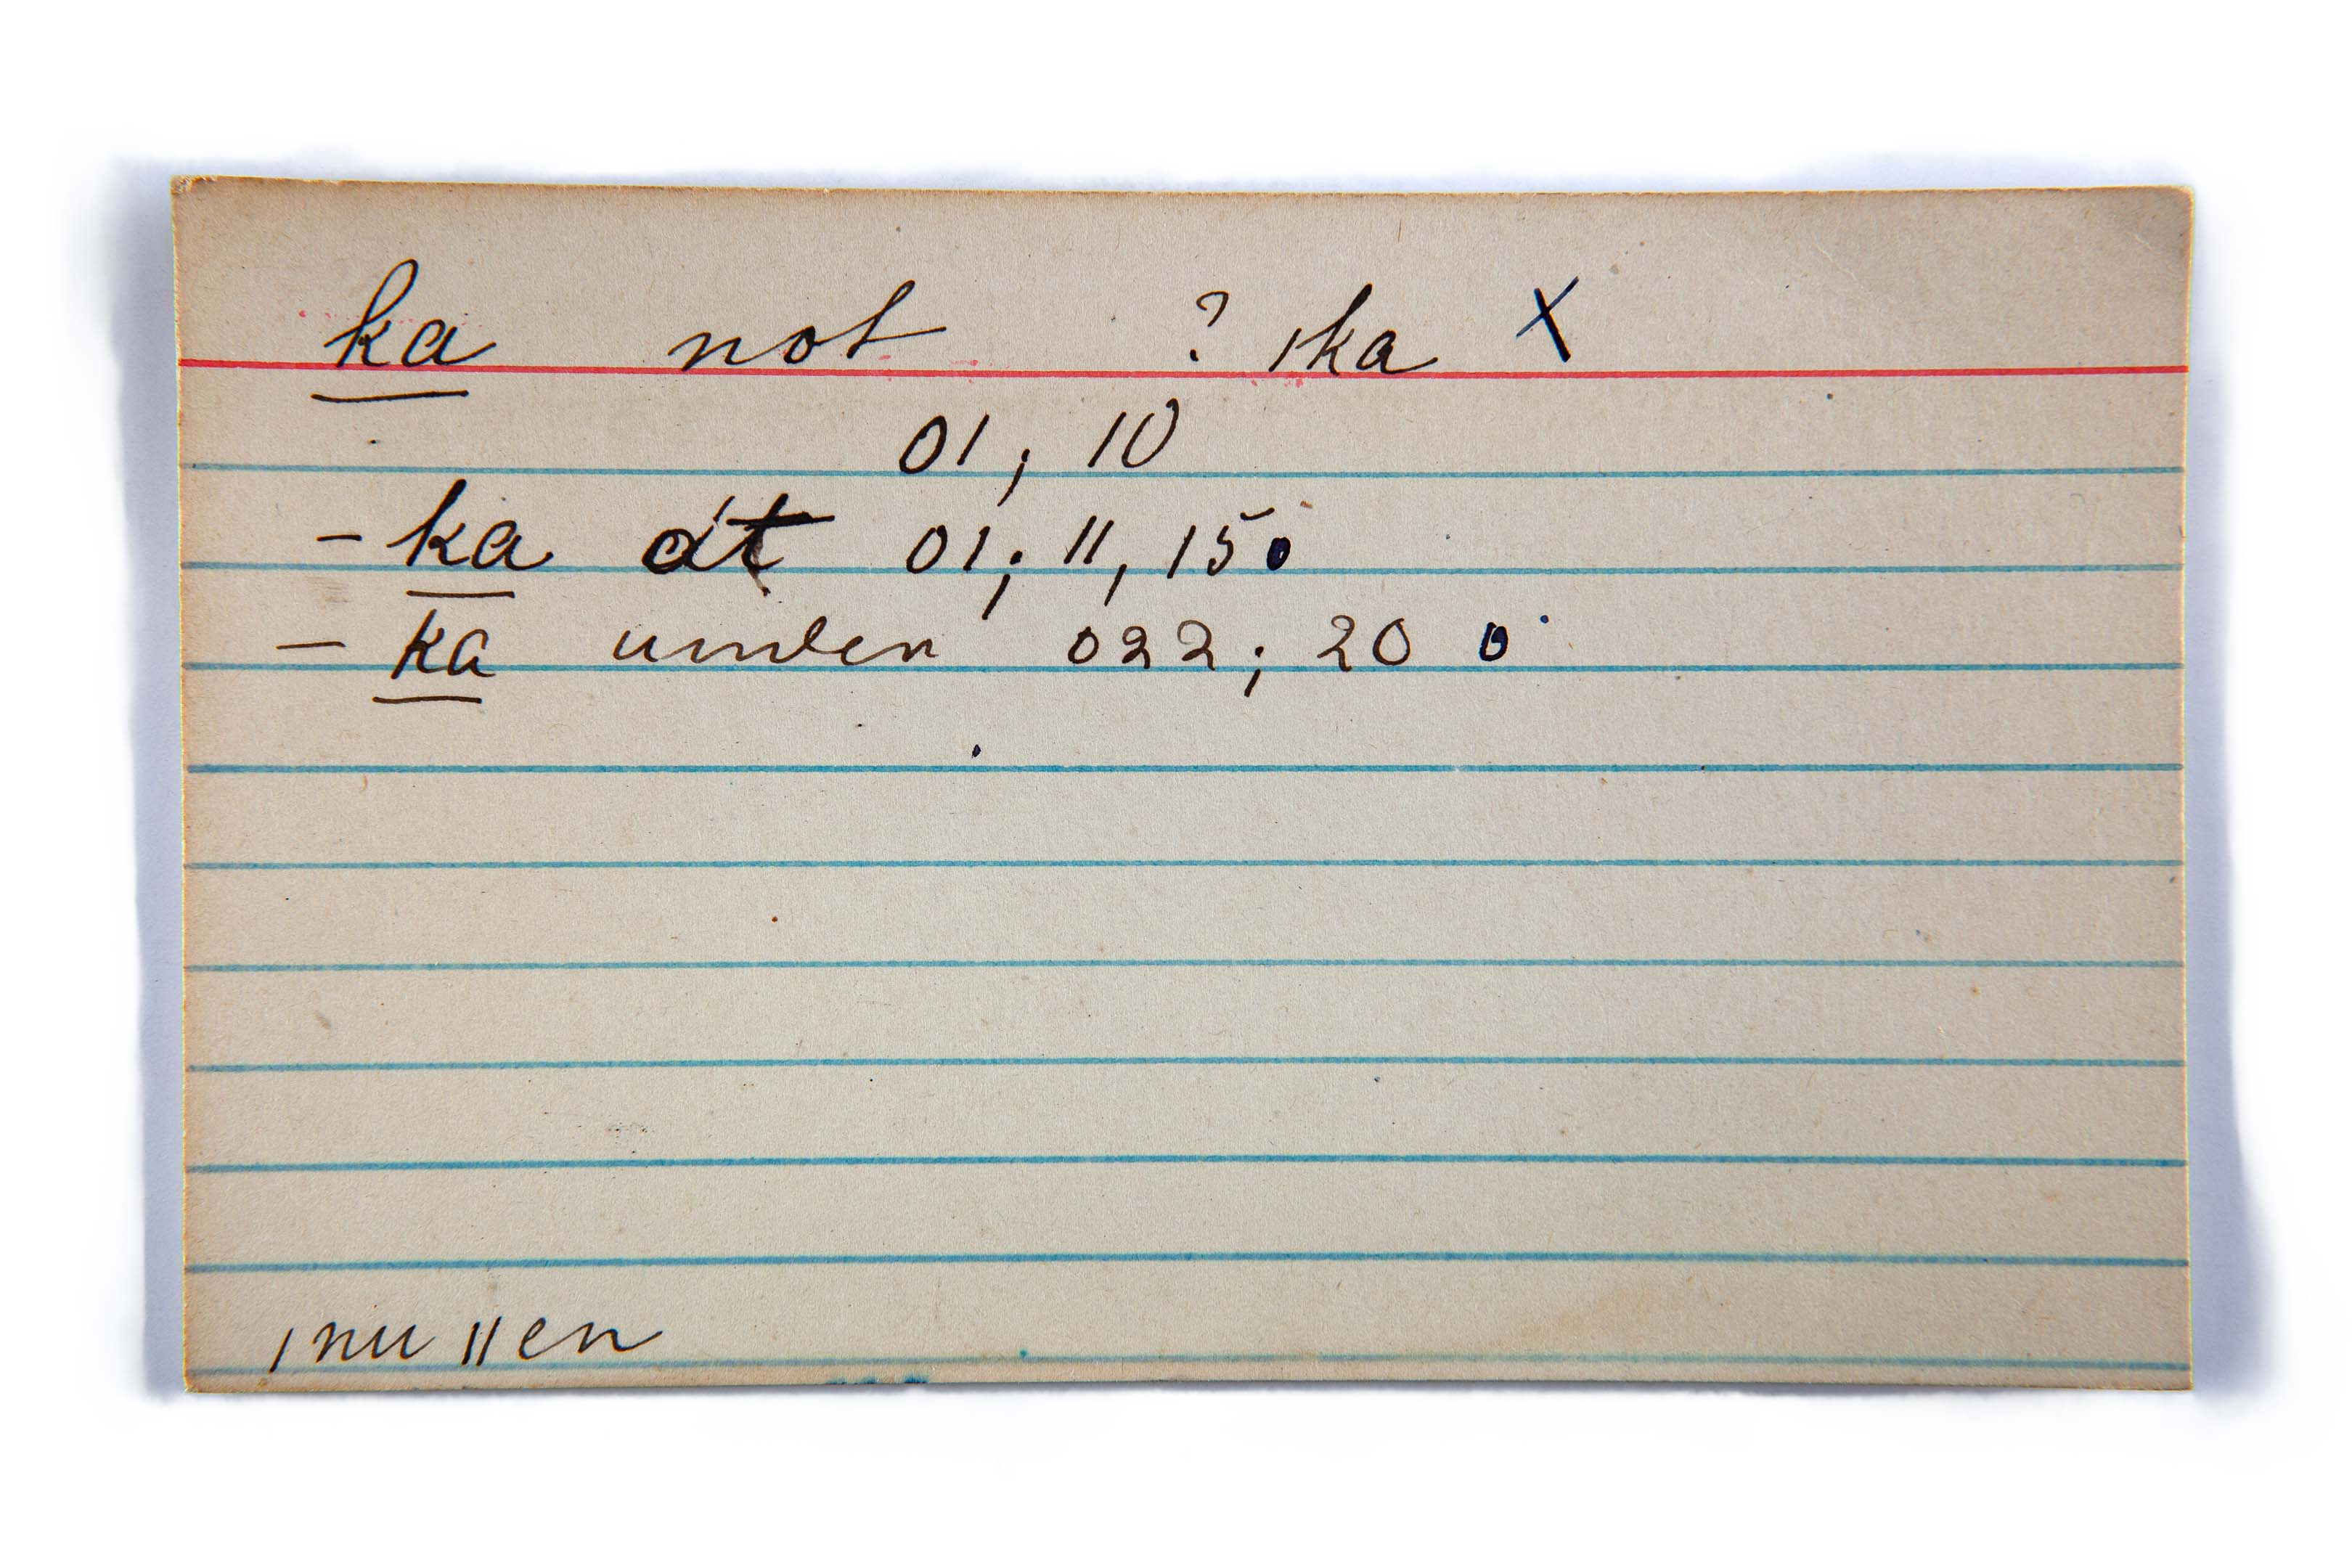 ka not ? ıka X
01; 10
- ka at 01; 11, 150
- ka under 022; 20 0